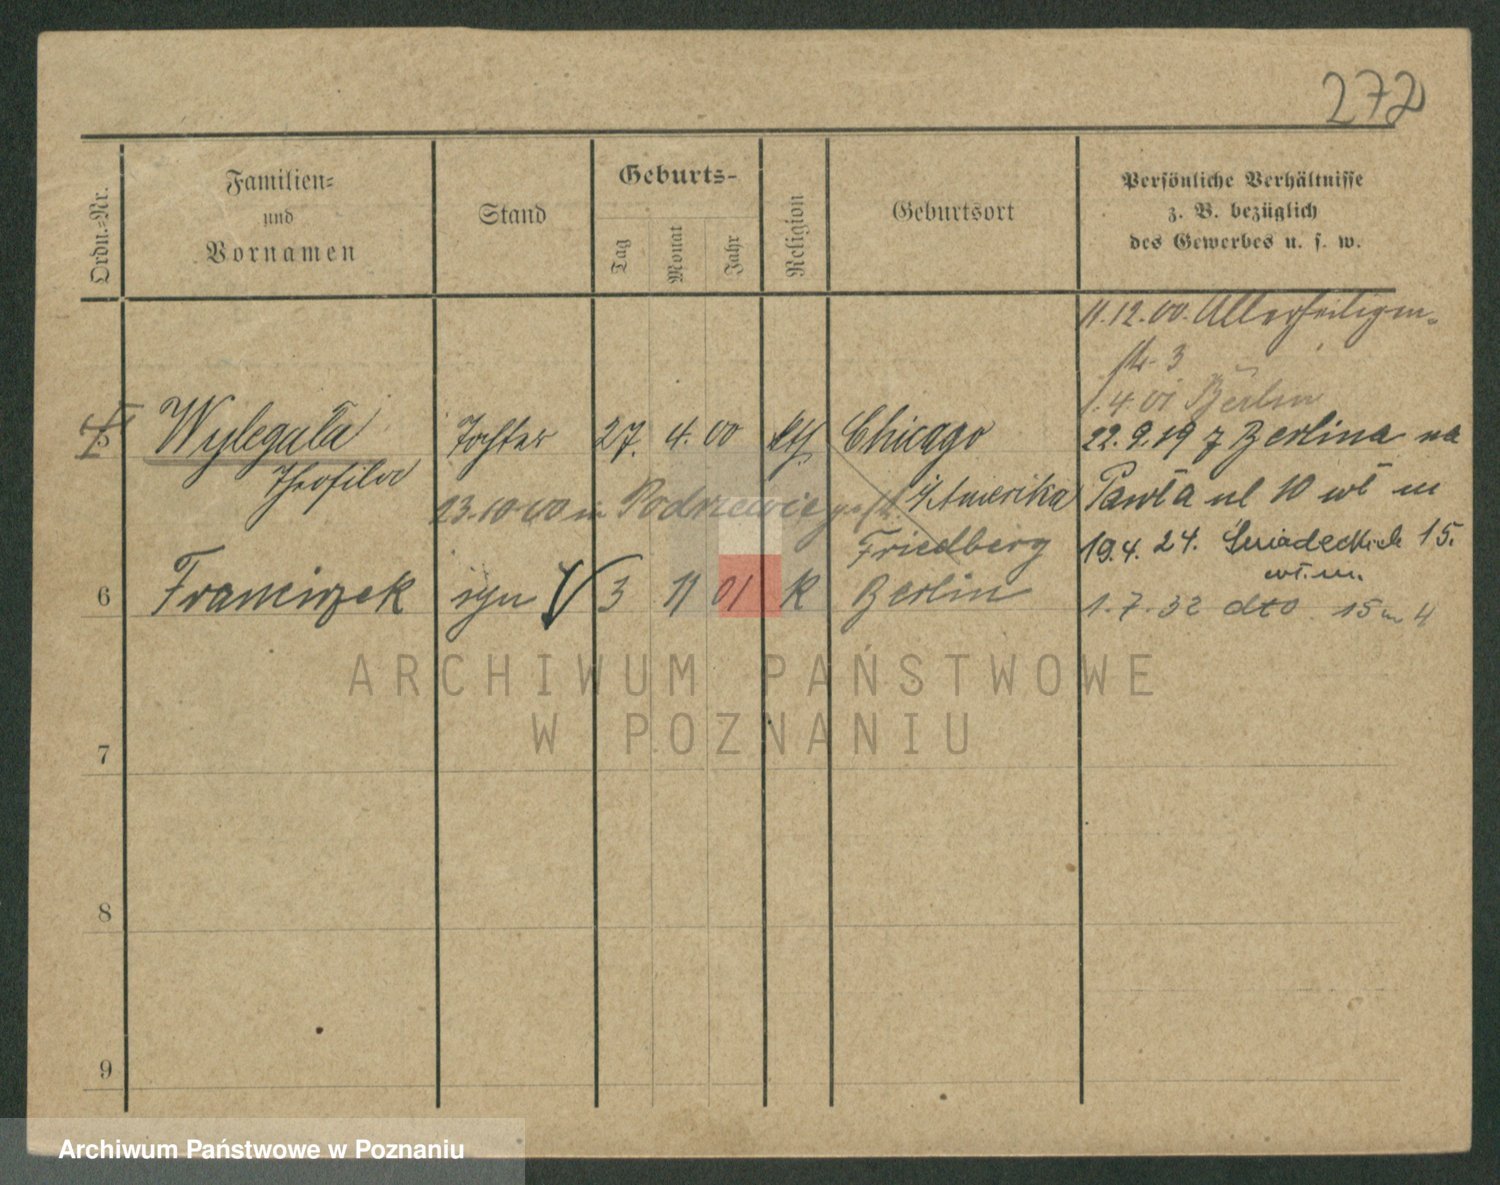 272
Ordn.-Nr.
Familien-
und
Vornamen
Stand
Geburts-
Tag
Monat
Jahr
Religion
Geburtsort
Persönliche Verhältnisse
z. B. bezüglich
des Gewerbes u. s. w.
11.12.00. Allerheiligen-
str. 3
1.4.01 Berlin
5 Wylegała Tochter 27. 4. 00 kth Chicago
22.9.19 z Berlina na
Theofila
i/Amerika
Pawła ul 10 wł m
23.10.00 in
Friedberg
19.4.24. Śniadeckich 15.
wł.m.
6 Franciszek syn V 3 11 01 k Berlin
1.7.32 dto 15 m 4
ARCHIWUM PAŃSTWOWE
W POZNANIU
7
8
9
Archiwum Państwowe w Poznaniu